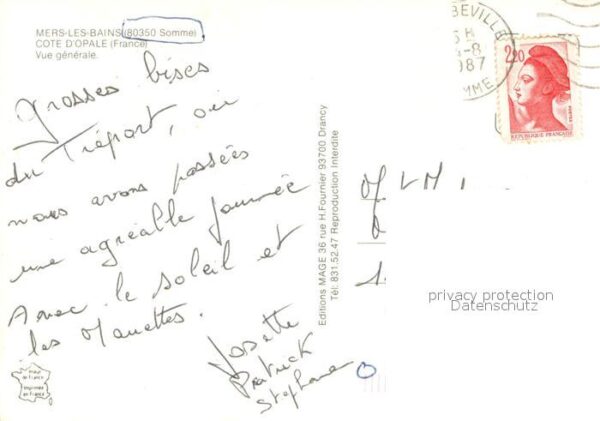 MERS-LES-BAINS (80350 Somme)
COTE D'OPALE (France)
Vue générale.
Grosses bises
du Tréport, où
nous avons passées
une agréable journée
Avec le soleil et
les Mouettes.
Josette
Patrick
Stephane
Editions MAGE 36 rue H.Fournier 93700 Drancy
Tél: 831.52.47 Reproduction Interdite
BEVILLE
8-8
1987
MME
2,20
POSTES
REPUBLIQUE FRANÇAISE
privacy protection
Datenschutz